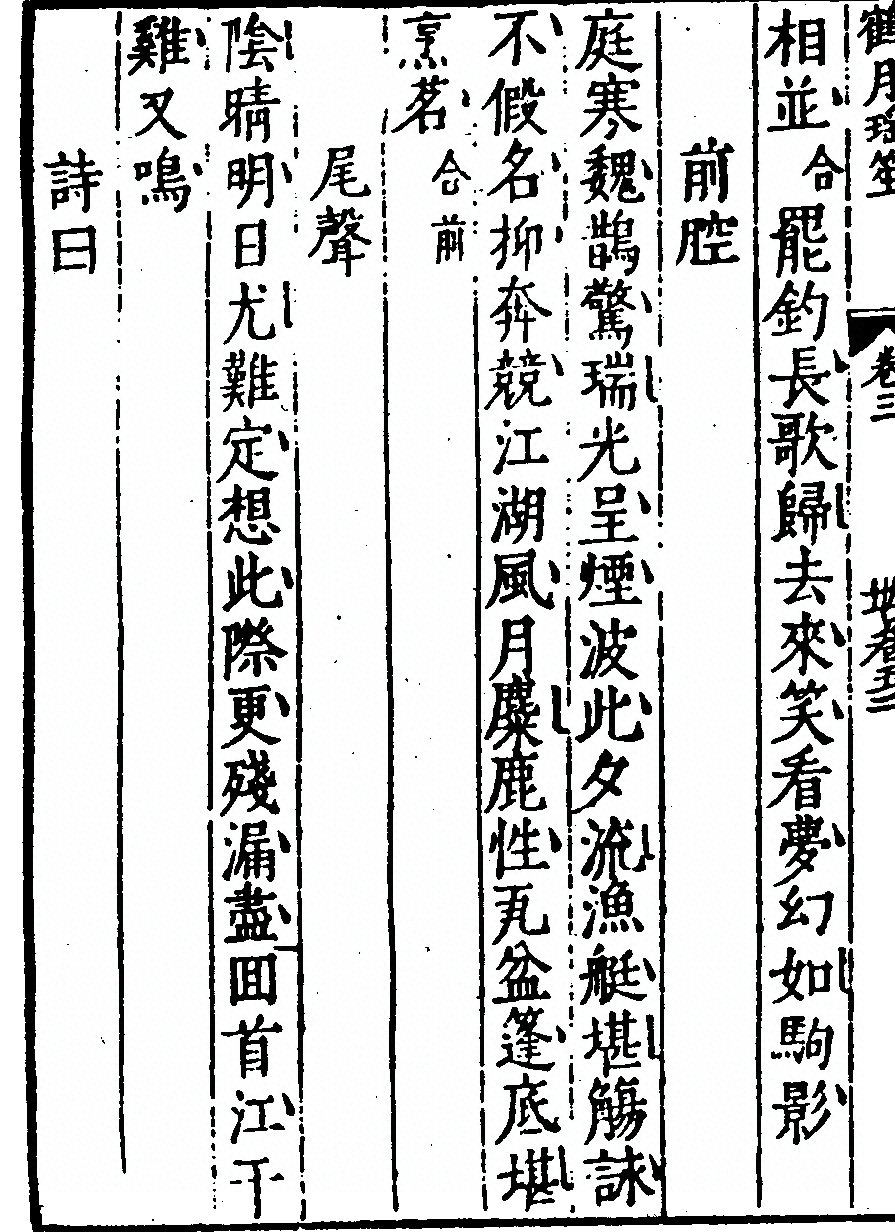 鶴月瑤笙 卷三 地卷五二
相並合罷釣長歌歸去來笑看夢幻如駒影
前腔
庭寒魏鵲驚瑞光呈煙波此夕流漁艇堪觴詠
不假名抑奔競江湖風月麋鹿性瓦盆篷底堪
烹茗合前
尾聲
陰晴明日尤難定想此際更殘漏盡囬首江干
雞又鳴
詩曰